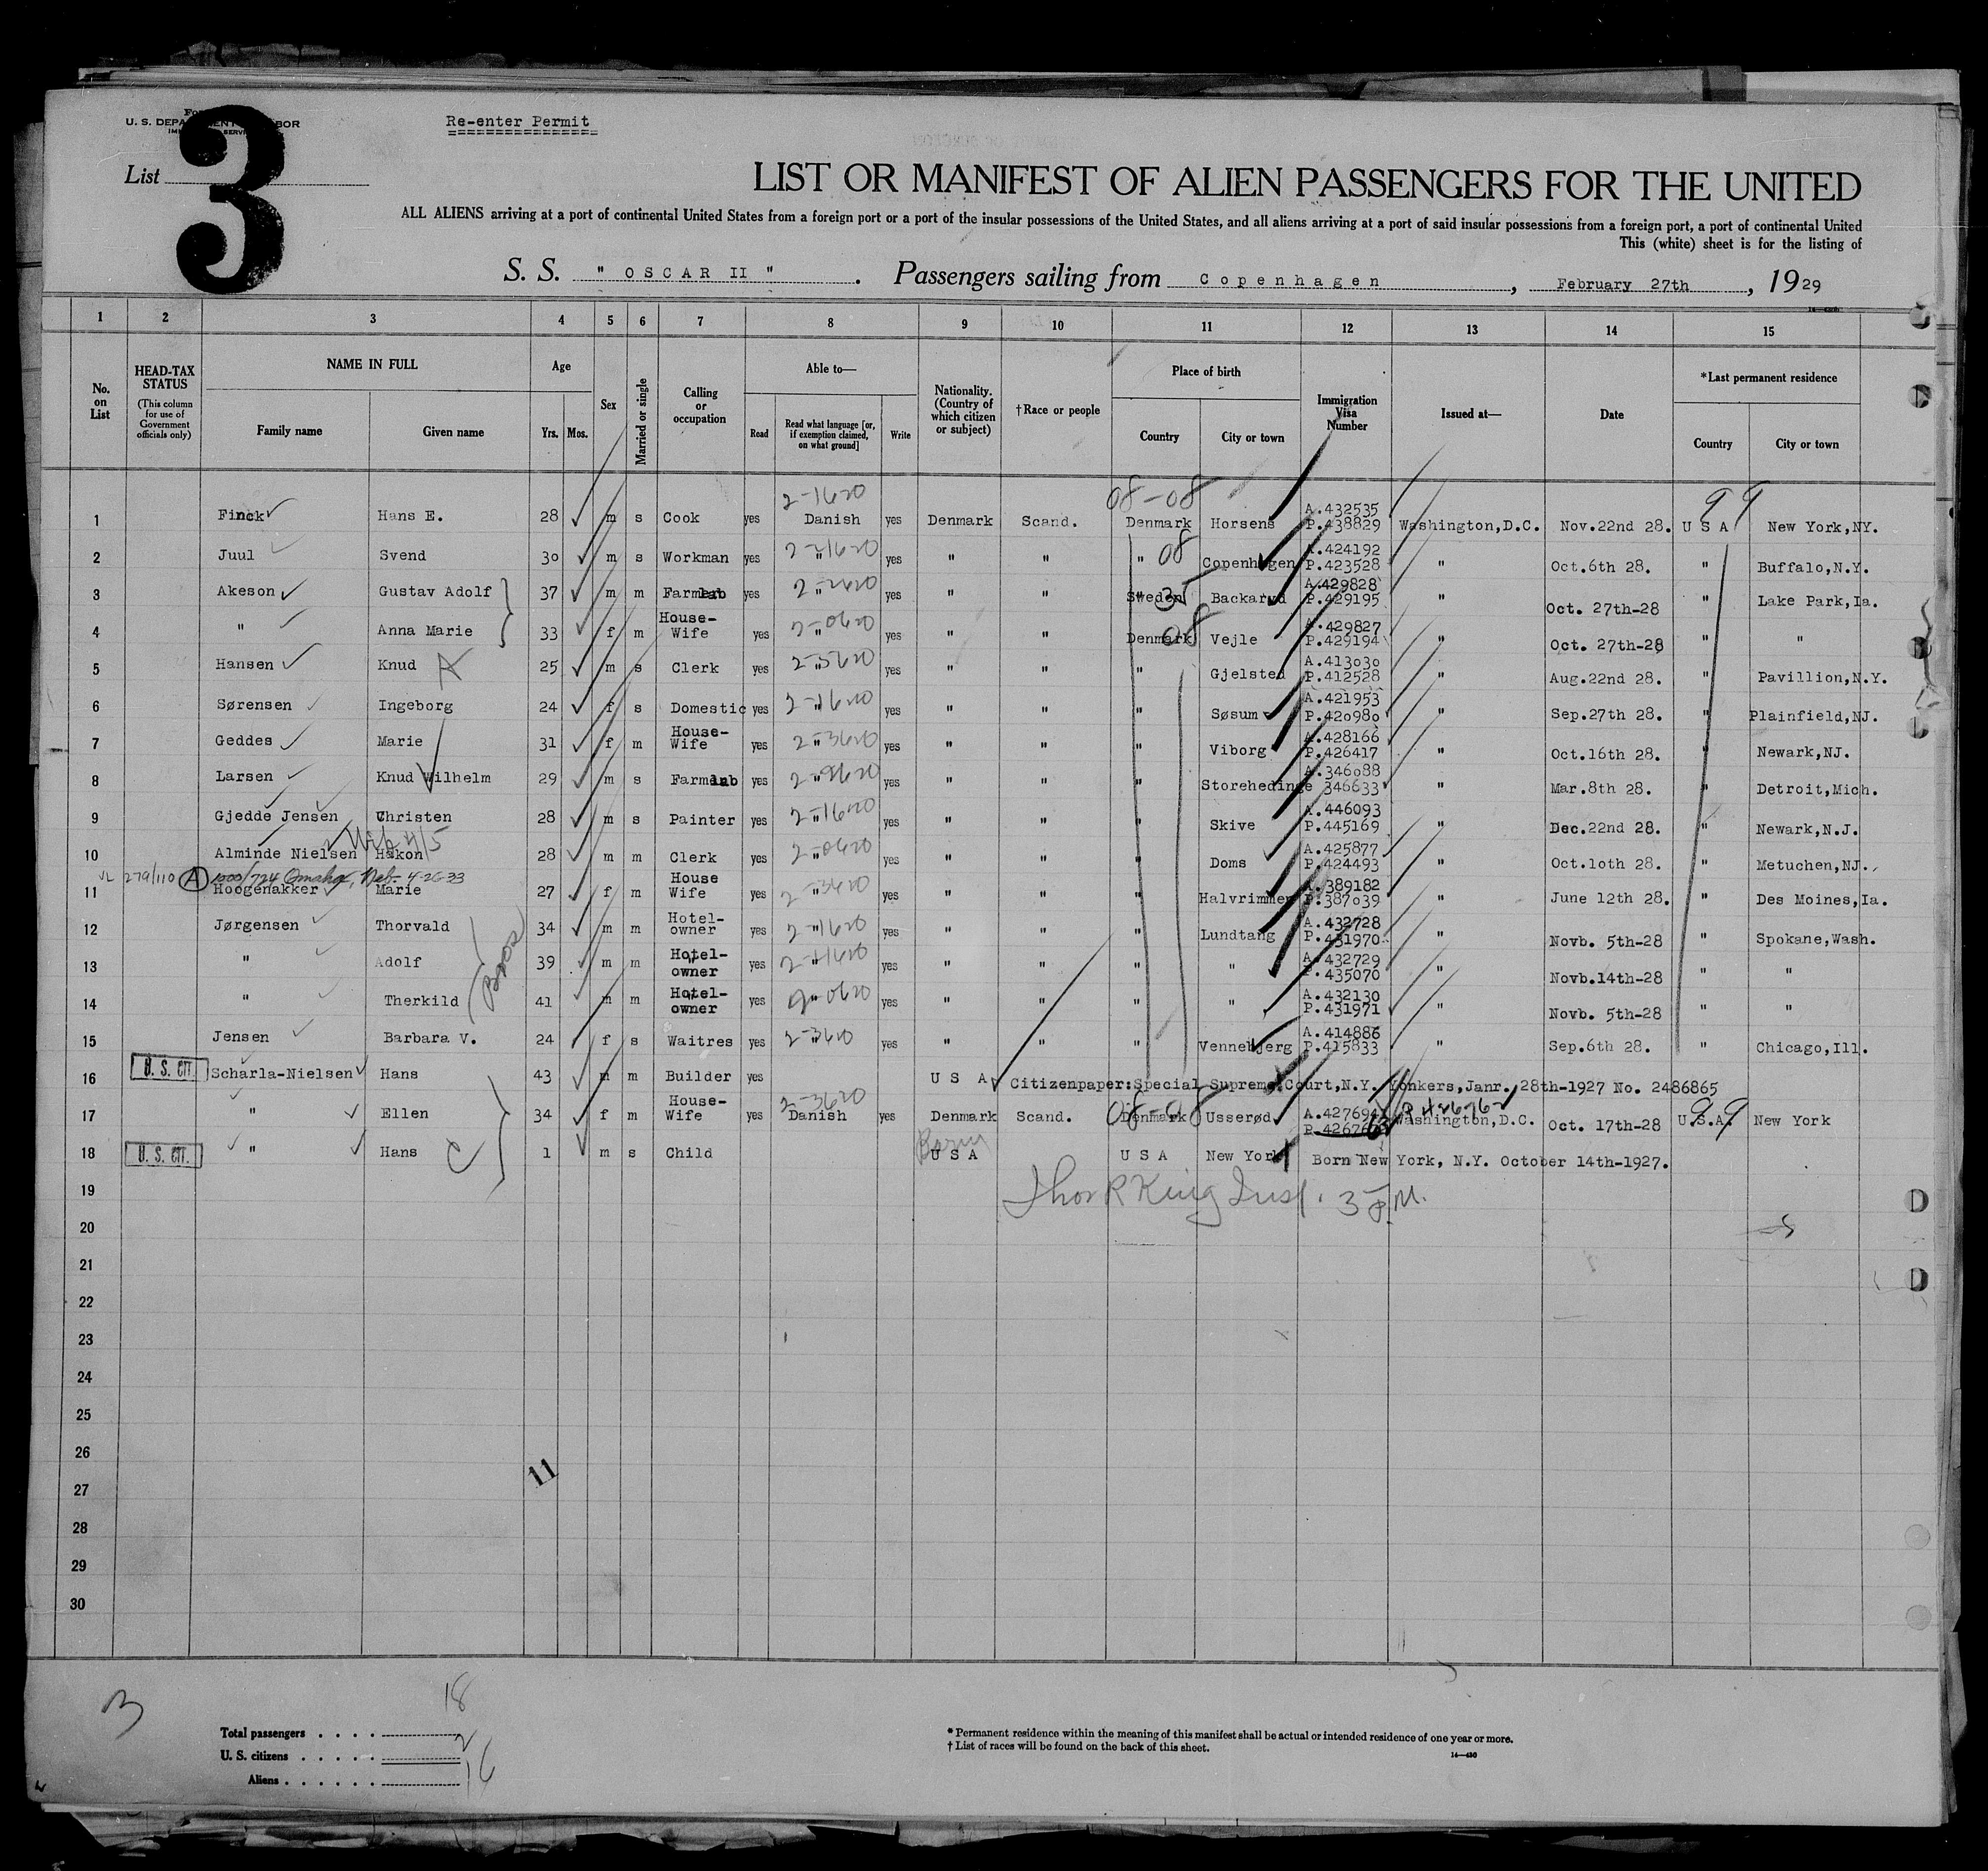 Re-enter Permit
U. S. DEPA
BOR
List
3
LIST OR MANIFEST OF ALIEN PASSENGERS FOR THE UNITED
ALL ALIENS arriving at a port of continental United States from a foreign port or a port of the insular possessions of the United States, and all aliens arriving at a port of said insular possessions from a foreign port, a port of continental United
This (white) sheet is for the listing of
S. S. " OSCAR II " . Passengers sailing from Copenhagen , February 27th , 1929
1 2 3 4 5 6 7 8 9 10 11 12 13 14 15
No. on List
HEAD-TAX STATUS
(This column for use of Government officials only)
NAME IN FULL
Family name Given name
Age
Yrs. Mos.
Sex
Married or single
Calling or occupation
Able to—
Read
Read what language [or, if exemption claimed, on what ground]
Write
Nationality. (Country of which citizen or subject)
†Race or people
Place of birth
Country City or town
Immigration Visa Number
Issued at—
Date
*Last permanent residence
Country City or town
2-1620 08-08 99
1 Finck Hans E. 28 m s Cook yes Danish yes Denmark Scand. Denmark Horsens A.432535 P.438829 Washington,D.C. Nov.22nd 28. U S A New York,NY.
2 Juul Svend 30 m s Workman yes " yes " " " 08 Copenhagen A.424192 P.423528 " Oct.6th 28. " Buffalo,N.Y.
3 Akeson Gustav Adolf 37 m m Farmlab yes " yes " " Sweden Backaryd A.429828 P.429195 " Oct. 27th-28 " Lake Park,Ia.
4 " Anna Marie 33 f m House-Wife yes 2-0620 " yes " " Denmark 08 Vejle A.429827 P.429194 " Oct. 27th-28 " "
5 Hansen Knud 25 m s Clerk yes 2-3620 " yes " " " Gjelsted A.413030 P.412528 " Aug.22nd 28. " Pavillion,N.Y.
6 Sørensen Ingeborg 24 f s Domestic yes 2-1620 " yes " " " Søsum A.421953 P.420980 " Sep.27th 28. " Plainfield,NJ.
7 Geddes Marie 31 f m House-Wife yes 2-3620 " yes " " " Viborg A.428166 P.426417 " Oct.16th 28. " Newark,NJ.
8 Larsen Knud Wilhelm 29 m s Farmlab yes " yes " " " Storehedinge A.346088 346633 " Mar.8th 28. " Detroit,Mich.
9 Gjedde Jensen Christen 28 m s Painter yes 2-1620 " yes " " " Skive A.446093 P.445169 " Dec.22nd 28. " Newark,N.J.
10 Alminde Nielsen Håkon 28 m m Clerk yes 2-0620 " yes " " " Doms A.425877 P.424493 " Oct.10th 28. " Metuchen,NJ.
VL 279/110 (A) 1000/724 Omaha, Neb. 4-26-33
11 Hoogenakker Marie 27 f m House Wife yes 2-3620 " yes " " " Halvrimmen A.389182 P.387039 " June 12th 28. " Des Moines,Ia.
12 Jørgensen Thorvald 34 m m Hotel-owner yes 2-1620 " yes " " " Lundtang A.432728 P.431970 " Novb. 5th-28 " Spokane,Wash.
13 " Adolf 39 m m Hotel-owner yes " yes " " " " A.432729 P.435070 " Novb.14th-28 " "
14 " Therkild 41 m m Hotel-owner yes " yes " " " " A.432130 P.431971 " Novb. 5th-28 " "
15 Jensen Barbara V. 24 f s Waitres yes 2-3620 " yes " " " Vennebjerg A.414886 P.415833 " Sep.6th 28. " Chicago,Ill.
16 U. S. CIT. Scharla-Nielsen Hans 43 m m Builder yes U S A Citizenpaper:Special Supreme Court,N.Y. Yonkers,Janr. 28th-1927 No. 2486865
17 " Ellen 34 f m House-Wife yes 2-3620 Danish yes Denmark Scand. 08-08 Denmark Usserød A.427694 P 426762 Washington,D.C. Oct. 17th-28 U.S.A. 99 New York
18 U. S. CIT. " Hans C 1 m s Child U S A U S A New York Born New York, N.Y. October 14th-1927.
19 Thos R King Insp. 3 P.M.
20
21
22
23
24
25
26
11
27
28
29
30
3
18
Total passengers
2
U. S. citizens
16
Aliens
* Permanent residence within the meaning of this manifest shall be actual or intended residence of one year or more.
† List of races will be found on the back of this sheet.